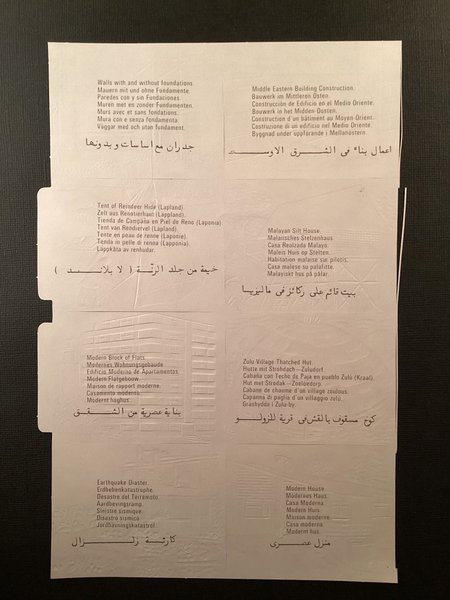 Walls with and without foundations.
Mauern mit und ohne Fundamente.
Paredes con y sin Fundaciones.
Muren met en zonder Fundamenten.
Murs avec et sans fondations.
Mura con e senza fondamenta.
Väggar med och utan fundament.
جدران مع اساسات و بدونها
Middle Eastern Building Construction.
Bauwerk im Mittleren Osten.
Construcción de Edificio en el Medio Oriente.
Bouwerk in het Midden-Oosten.
Construction d'un bâtiment au Moyen-Orient.
Costruzione di un edificio nel Medio Oriente.
Byggnad under uppförande i Mellanöstern.
اعمال بناء في الشرق الاوسط
Tent of Reindeer Hide (Lapland).
Zelt aus Renotierhaut (Lappland).
Tienda de Campaña en Piel de Reno (Laponia)
Tent van Rendiervel (Lapland).
Tente en peau de renne (Laponie).
Tenda in pelle di renna (Lapponia).
Lappkåta av renhudar.
خيمة من جلد الرنّة ( لابلاند )
Malayan Stilt House.
Malaiisches Stelzenhaus
Casa Realzada Malaya.
Maleis Huis op Stelten.
Habitation malaise sur pilotis.
Casa malese su palafitte.
Malayiskt hus på pålar.
بيت قائم على ركائز في ماليزيا
Modern Block of Flats.
Modernes Wohnungsgebäude
Edificio Moderno de Apartamentos.
Modern Flatgebouw.
Maison de rapport moderne.
Casamento moderno.
Modernt höghus.
بناية عصرية من الشقق
Zulu Village Thatched Hut.
Hütte mit Strohdach—Zuludorf.
Cabaña con Techo de Paja en pueblo Zulú (Kraal).
Hut met Strodak—Zoeloedorp.
Cabane de chaume d'un village zoulous.
Capanna di paglia d'un villaggio zulú.
Gräshydda i Zulu-by.
كوخ مسقوف بالقش في قرية للزولو
Earthquake Diaster.
Erdbebenkatastrophe.
Desastre del Terremoto.
Aardbevingsramp.
Sinistre sismique.
Disastro sismico.
Jordbävningskatastrof.
كارثة زلزال
Modern House.
Modernes Haus.
Casa Moderna.
Modern Huis.
Maison moderne.
Casa moderna.
Modernt hus.
منزل عصري